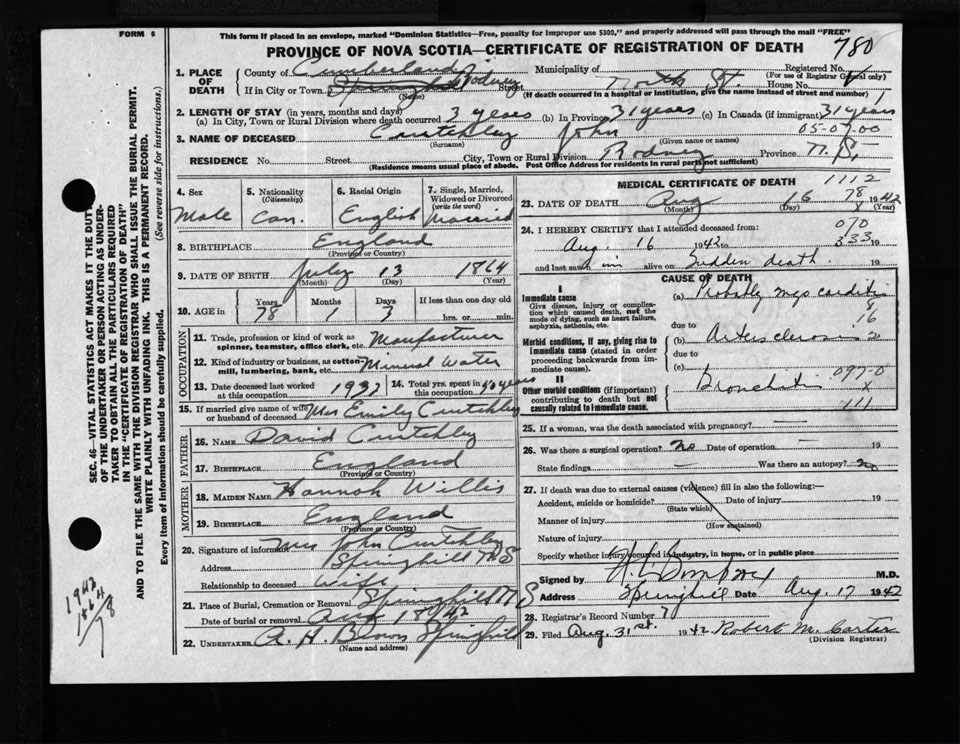 FORM 6
This form if placed in an envelope, marked "Dominion Statistics—Free, penalty for improper use $300," and properly addressed will pass through the mail "FREE"
780
PROVINCE OF NOVA SCOTIA—CERTIFICATE OF REGISTRATION OF DEATH
1. PLACE OF DEATH County of Cumberland Municipality of Registered No.
(For use of Registrar General only)
If in City or Town Springhill Rodney (Name) Street North St. House No. 1
(If death occurred in a hospital or institution, give the name instead of street and number)
2. LENGTH OF STAY (in years, months and days)
(a) In City, Town or Rural Division where death occurred 3 years (b) In Province 31 years (c) In Canada (if immigrant) 31 years
05-07.00
3. NAME OF DECEASED Crutchley John
(Surname) (Given name or names)
RESIDENCE No. Street City, Town or Rural Division Rodney Province N.S.
(Residence means usual place of abode. Post Office Address for residents in rural parts not sufficient)
4. Sex Male
5. Nationality (Citizenship) Can.
6. Racial Origin English
7. Single, Married, Widowed or Divorced (write the word) Married
8. BIRTHPLACE England
(Province or Country)
9. DATE OF BIRTH July 13 1864
(Month) (Day) (Year)
10. AGE in Years 78 Months 1 Days 3 If less than one day old
hrs. or min.
OCCUPATION
11. Trade, profession or kind of work as spinner, teamster, office clerk, etc. Manufacturer
12. Kind of industry or business, as cotton-mill, lumbering, bank, etc. Mineral Water
13. Date deceased last worked at this occupation 1937
14. Total yrs. spent in this occupation 40 years
15. If married give name of wife or husband of deceased Mrs Emily Crutchley
FATHER
16. NAME David Crutchley
17. BIRTHPLACE England
(Province or Country)
MOTHER
18. MAIDEN NAME Hannah Willis
19. BIRTHPLACE England
(Province or Country)
20. Signature of informant Mrs John Crutchley
Address Springhill N S
Relationship to deceased Wife
21. Place of Burial, Cremation or Removal Springhill N S
Date of burial or removal Aug 18th/42
22. UNDERTAKER A. H Brown Springhill
(Name and address)
MEDICAL CERTIFICATE OF DEATH 1112
78
23. DATE OF DEATH Aug 16 1942
(Month) (Day) (Year)
24. I HEREBY CERTIFY that I attended deceased from:
070
Aug. 16 1942 to 333 19
and last saw him alive on Sudden death. 19
CAUSE OF DEATH
I
Immediate cause
Give disease, injury or complication which caused death, not the mode of dying, such as heart failure, asphyxia, asthenia, etc.
(a) Probably myocarditis
due to
16
Morbid conditions, if any, giving rise to immediate cause (stated in order proceeding backwards from immediate cause).
(b) Arteriosclerosis 2
due to
(c)
II
Other morbid conditions (if important) contributing to death but not causally related to immediate cause.
Bronchitis 097-0
x
111
25. If a woman, was the death associated with pregnancy? —
26. Was there a surgical operation? no Date of operation — 19
State findings — Was there an autopsy? no
27. If death was due to external causes (violence) fill in also the following:—
Accident, suicide or homicide? Date of injury 19
(State which)
Manner of injury
(How sustained)
Nature of injury
Specify whether injury occurred in industry, in home, or in public place
Signed by M.D.
Address Springhill Date Aug. 17 1942
28. Registrar's Record Number 7
29. Filed Aug. 31st. 1942 Robert M. Carter
(Division Registrar)
SEC. 46—VITAL STATISTICS ACT MAKES IT THE DUTY OF THE UNDERTAKER OR PERSON ACTING AS UNDERTAKER TO OBTAIN ALL THE PARTICULARS REQUIRED IN THE "CERTIFICATE OF REGISTRATION OF DEATH"
AND TO FILE THE SAME WITH THE DIVISION REGISTRAR WHO SHALL ISSUE THE BURIAL PERMIT.
WRITE PLAINLY WITH UNFADING INK. THIS IS A PERMANENT RECORD.
Every item of information should be carefully supplied. (See reverse side for instructions.)
1942
1864
78